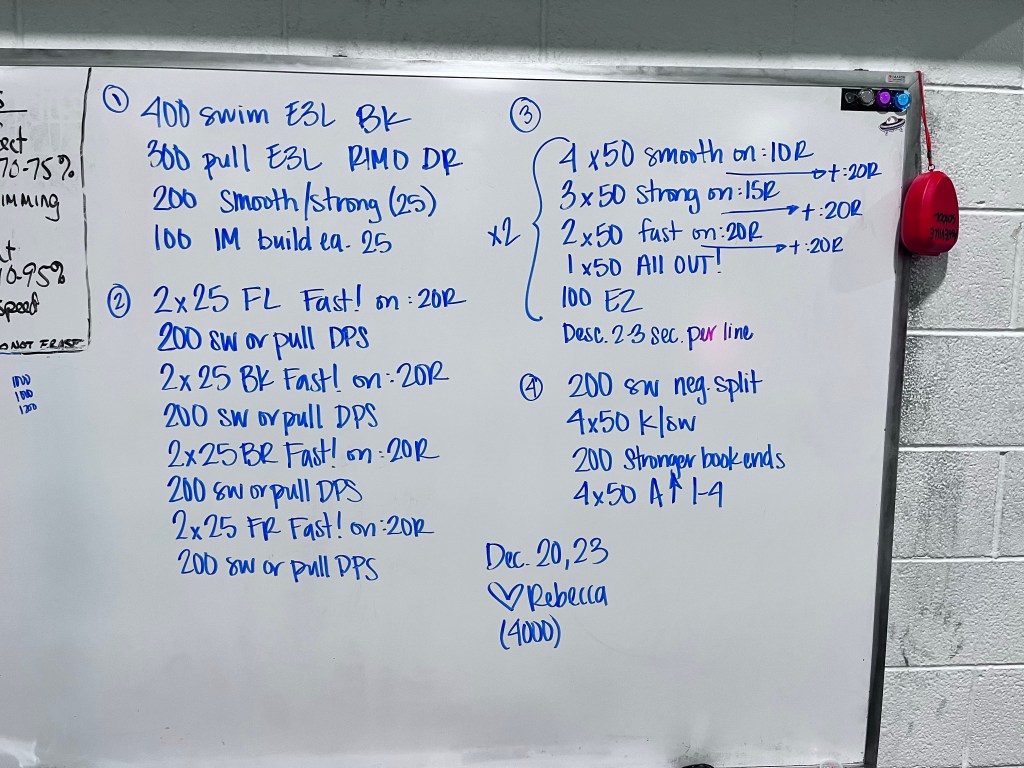 ect
70-75%
imming
0-95%
speed
O NOT ERASE
1200
① 400 swim E3L BK
300 pull E3L RIMO DR
200 smooth/strong (25)
100 IM build ea. 25
② 2x25 FL Fast! on :20R
200 sw or pull DPS
2x25 BK Fast! on :20R
200 sw or pull DPS
2x25 BR Fast! on :20R
200 sw or pull DPS
2x25 FR Fast! on :20R
200 sw or pull DPS
③
x2
4x50 smooth on :10R → + :20R
3x50 strong on :15R → + :20R
2x50 fast on :20R → + :20R
1x50 All OUT!
100 EZ
Desc. 2-3 sec. per line
④ 200 sw neg. split
4x50 K/sw
200 Stronger bookends
4x50 A↑ 1-4
Dec. 20, 23
♡ Rebecca
(4000)